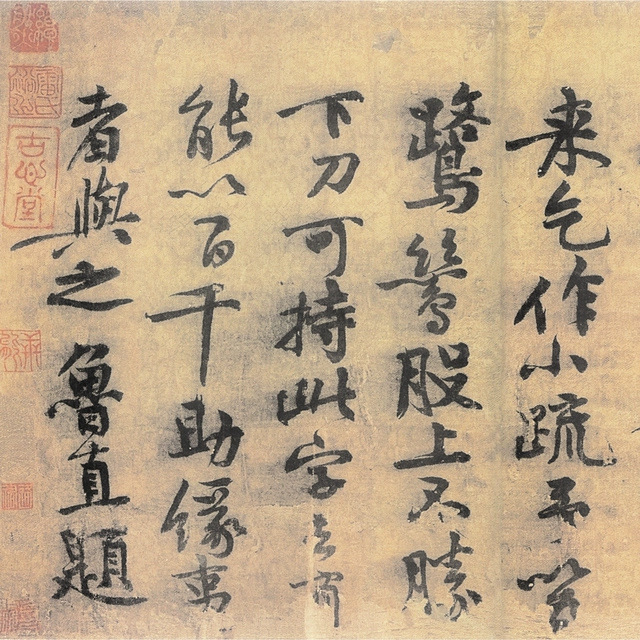 来乞作小疏
鷺鶿股上不勝
下刀可持此字去有
能以百千助緣事
者與之魯直題